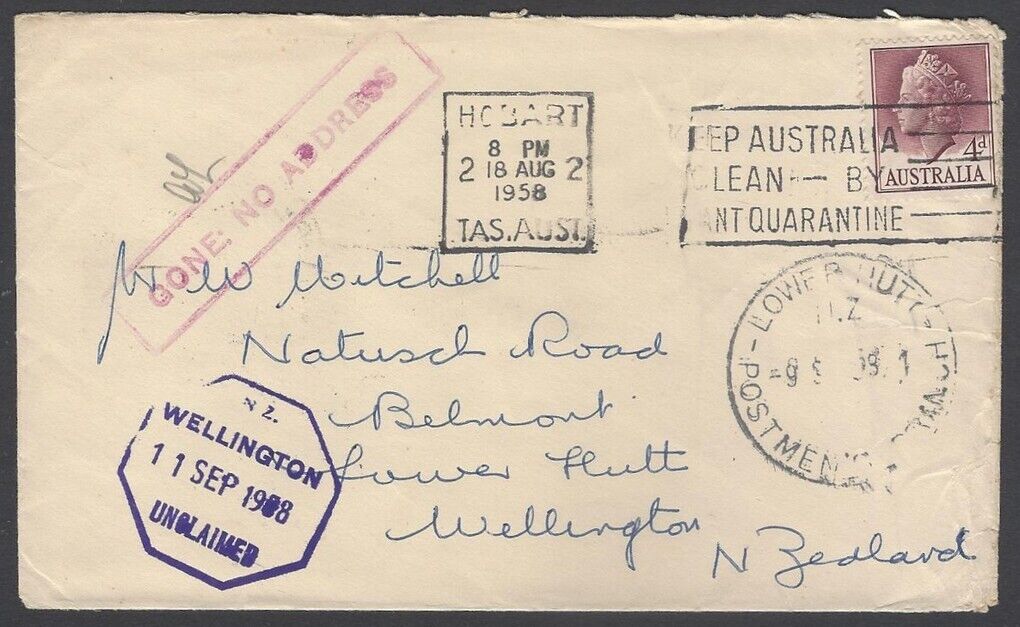 GONE: NO ADDRESS
HOBART
8 PM
2 18 AUG 2
1958
TAS. AUST.
KEEP AUSTRALIA
CLEAN — BY
ANT QUARANTINE
4d
AUSTRALIA
W Mitchell
Natusch Road
Belmont
Lower Hutt
Wellington
N Zedland
LOWER HUTT
N.Z
POSTMEN'S BRANCH
N.Z.
WELLINGTON
11 SEP 1958
UNCLAIMED